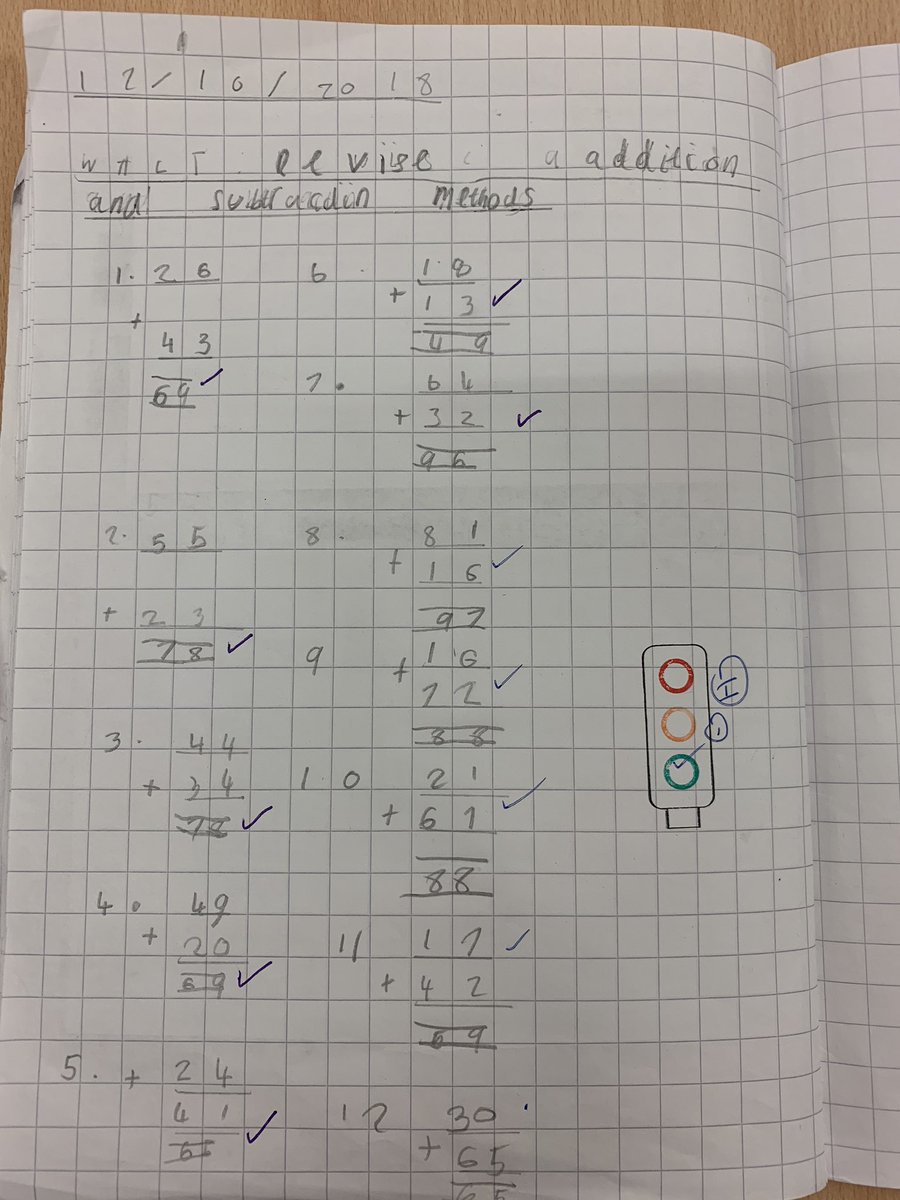 12/10/2018
WALT: Revise a addition
and subtracdion methods
1. 26 6 18
+ + 13
43 49
69 7. 64
+ 32
96
2. 55 8. 81
+ 16
+ 23 97
78 9 + 16
72
3. 44 88
+ 34 10 21
78 + 67
88
4. 49
+ 20 11 17
69 + 42
59
5. + 24
41 12 30
65 + 65